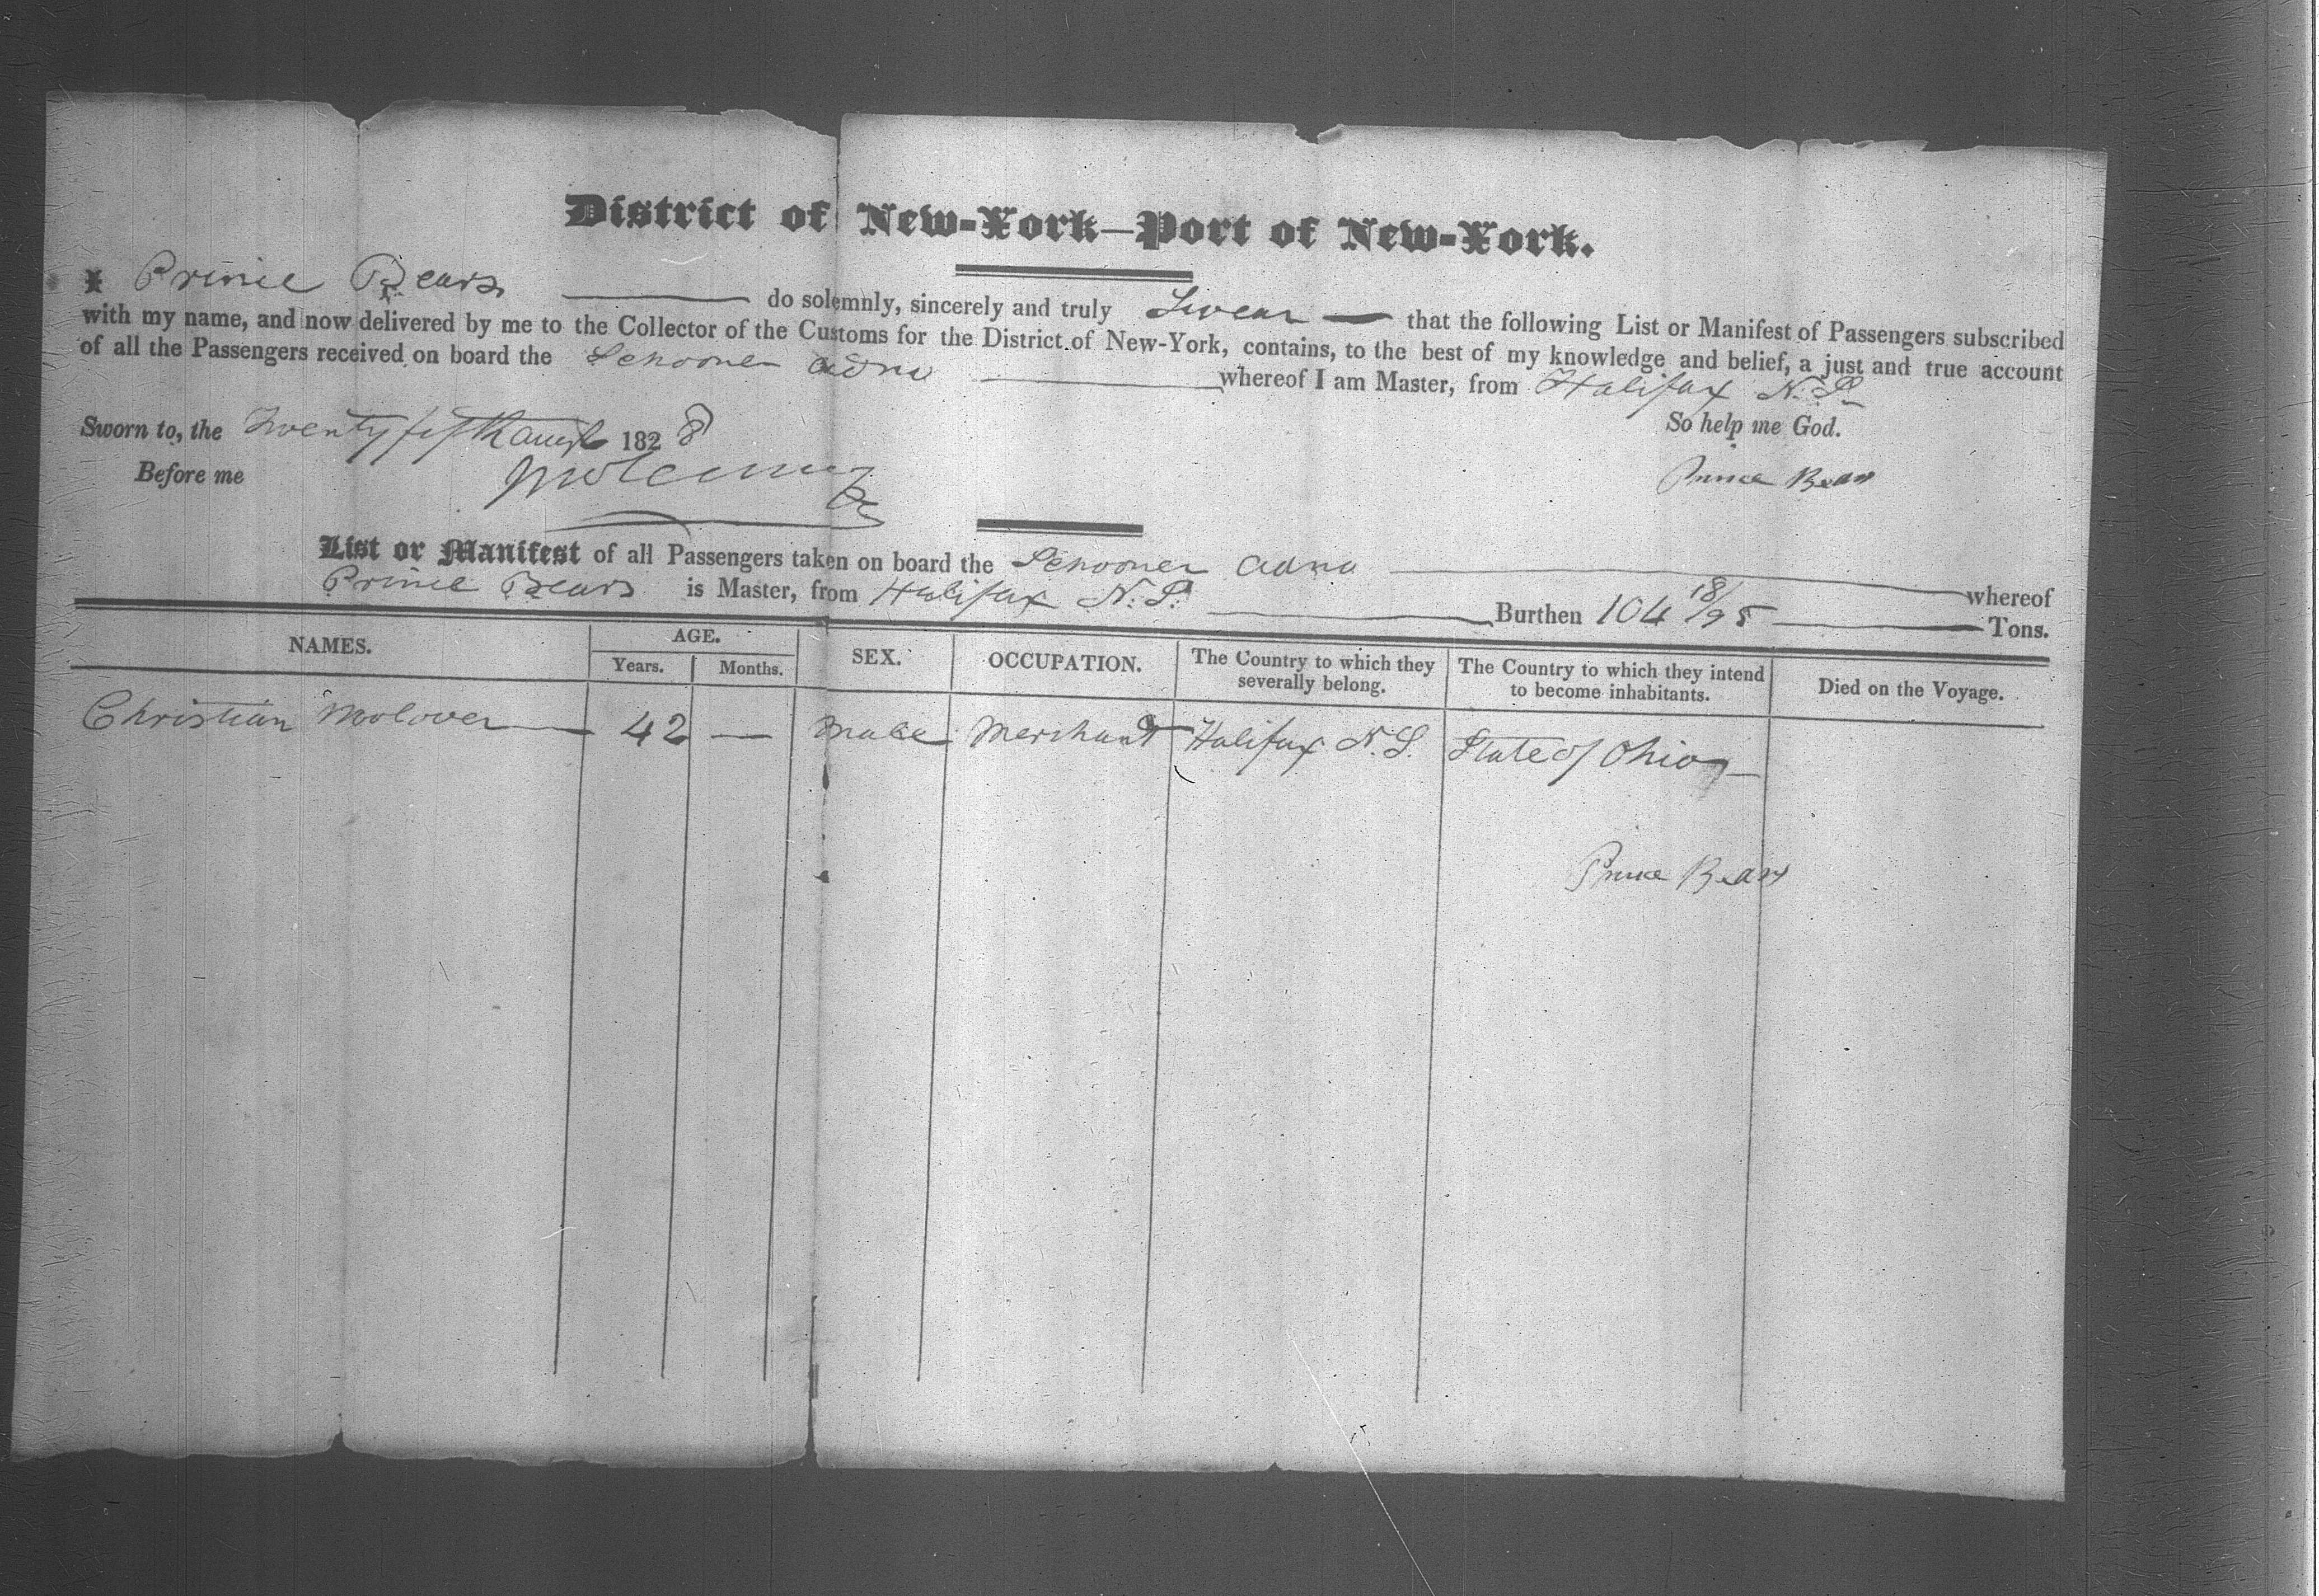 District of New-York—Port of New-York.
I Prince Bears do solemnly, sincerely and truly Swear that the following List or Manifest of Passengers subscribed
with my name, and now delivered by me to the Collector of the Customs for the District of New-York, contains, to the best of my knowledge and belief, a just and true account
of all the Passengers received on board the Schooner Adna whereof I am Master, from Halifax N. S.
So help me God.
Sworn to, the Twenty fifth Augt 1828
Before me
Prince Bears
List or Manifest of all Passengers taken on board the Schooner Adna whereof
Prince Bears is Master, from Halifax N. S. Burthen 104 18/95 Tons.
NAMES. AGE. SEX. OCCUPATION. The Country to which they severally belong. The Country to which they intend to become inhabitants. Died on the Voyage.
Years. Months.
Christian 42 — Male Merchant Halifax N. S. State of Ohio
Prince Bears